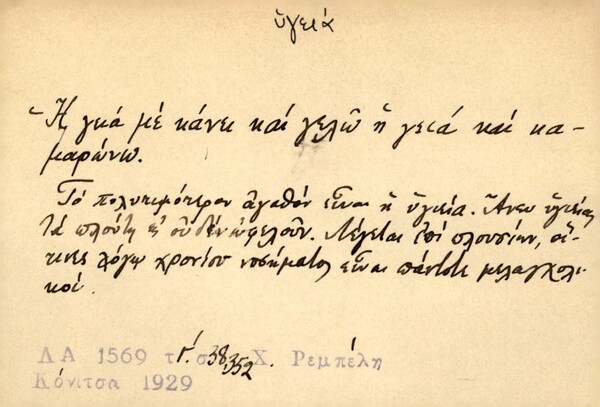 ὑγειά
Ἡ γειά μέ κάνει καί γελῶ ἡ γειά καί κα-
μαρώνω.
Τό πολυτιμότερον ἀγαθόν εἶναι ἡ ὑγιεία. Ἄνευ ὑγιείας
τά πλούτη εἰς οὐδέν ὠφελοῦν. Λέγεται ἐπί πλουσίων, οἵ-
τινες λόγῳ χρονίου νοσήματος εἶναι πάντοτε μελαγχολι-
κοί.
ΛΑ 1569 τ γ́. σ 38, 352. Χ. Ρεμπέλη
Κόνιτσα 1929